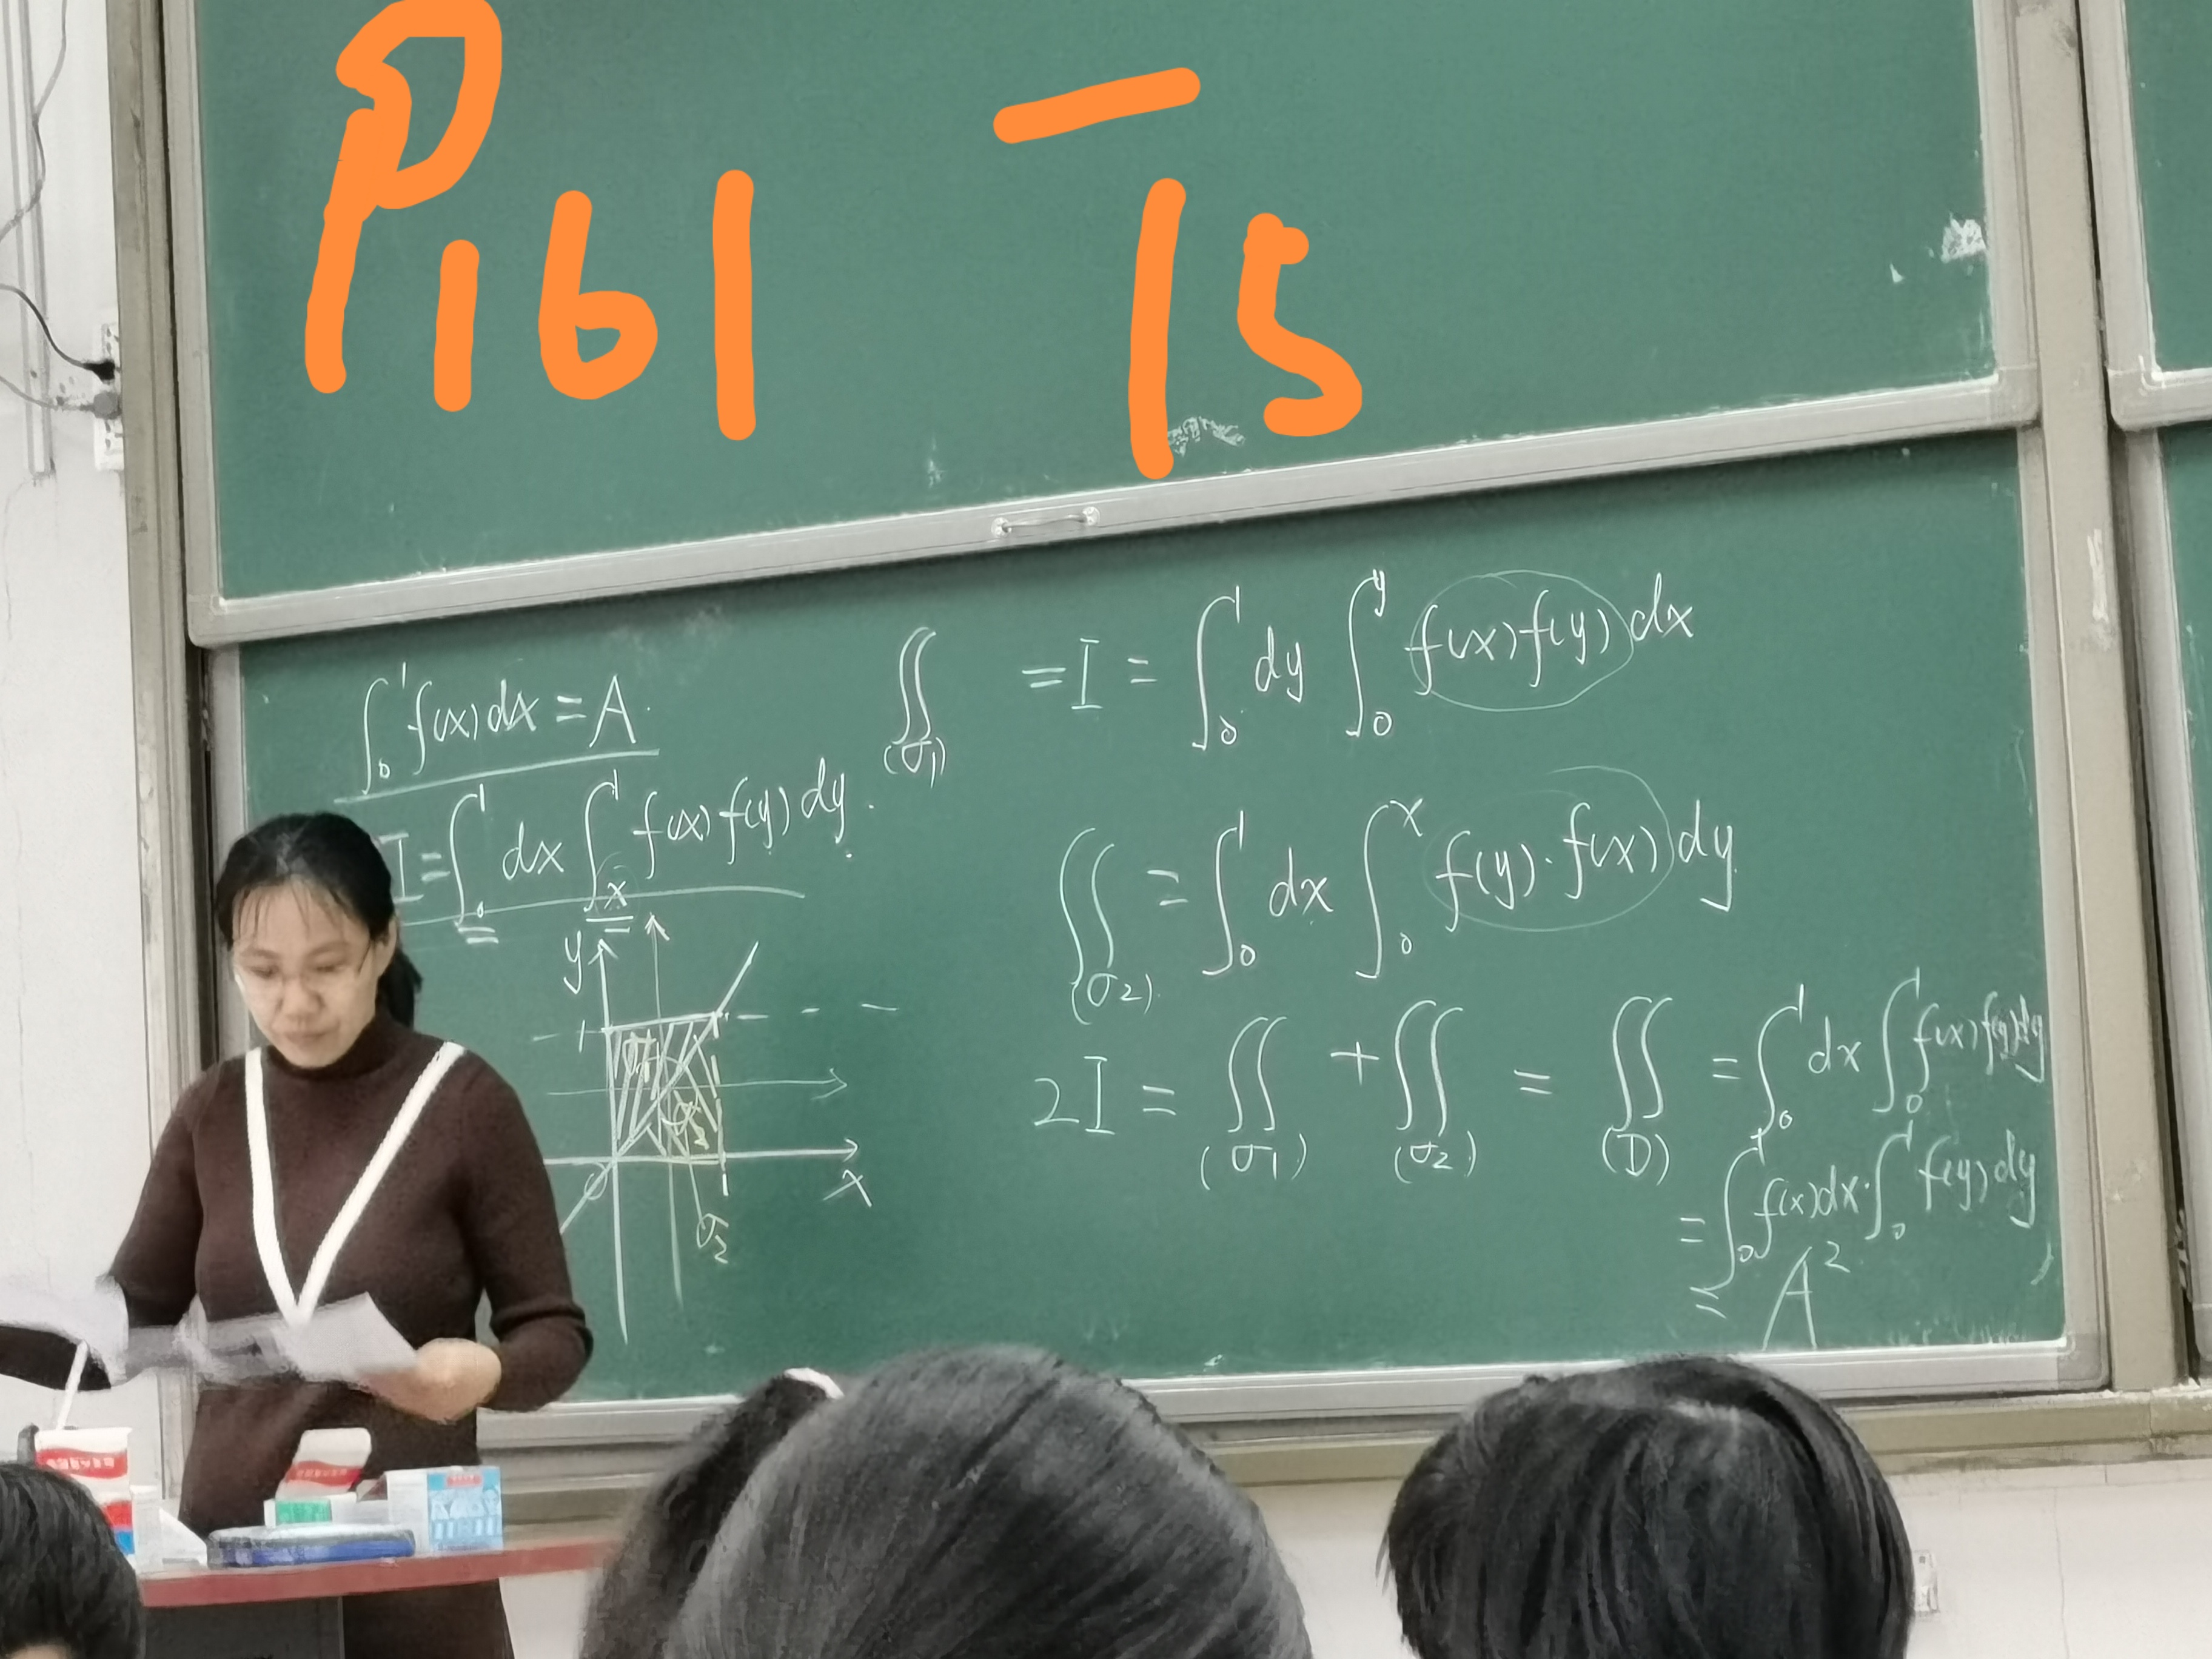 P161 — 15
∫₀¹ f(x)dx = A.
I = ∫₀¹ dx ∫ₓ¹ f(x)f(y)dy.
y
1
σ₁
σ₂
O
x
σ₂
∬(σ₁) = I = ∫₀¹ dy ∫₀ʸ f(x)f(y)dx
∬(σ₂) = ∫₀¹ dx ∫₀ˣ f(y)·f(x)dy
2I = ∬(σ₁) + ∬(σ₂) = ∬(D) = ∫₀¹ dx ∫₀¹ f(x)f(y)dy
= ∫₀¹ f(x)dx·∫₀¹ f(y)dy
= A²